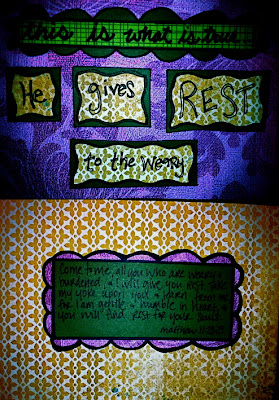 this is what is true
He gives REST
to the weary
Come to me, all you who are weary &
burdened, & I will give you rest. Take
my yoke upon you & learn from me
for I am gentle & humble in heart, &
you will find rest for your souls.
matthew 11:28-29